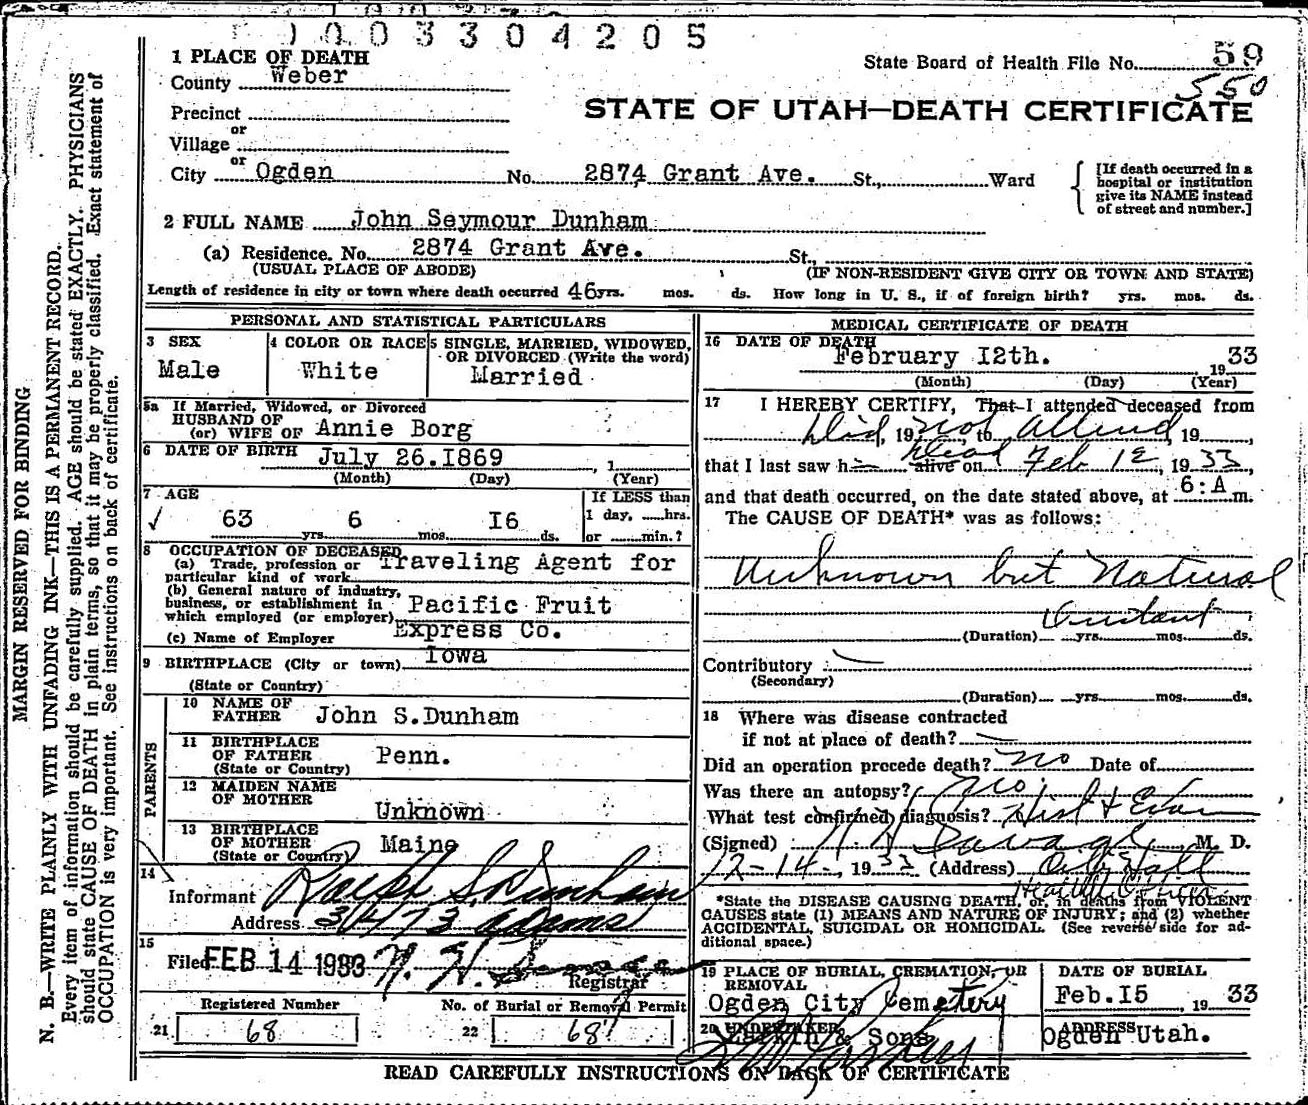 0003304205
1 PLACE OF DEATH
County Weber
State Board of Health File No. 59
550
STATE OF UTAH—DEATH CERTIFICATE
Precinct
or
Village
or
City Ogden No. 2874 Grant Ave. St., Ward
[If death occurred in a hospital or institution give its NAME instead of street and number.]
2 FULL NAME John Seymour Dunham
(a) Residence. No. 2874 Grant Ave. St.,
(USUAL PLACE OF ABODE) (IF NON-RESIDENT GIVE CITY OR TOWN AND STATE)
Length of residence in city or town where death occurred 46 yrs. mos. ds. How long in U. S., if of foreign birth? yrs. mos. ds.
PERSONAL AND STATISTICAL PARTICULARS
3 SEX
Male
4 COLOR OR RACE
White
5 SINGLE, MARRIED, WIDOWED, OR DIVORCED (Write the word)
Married
5a If Married, Widowed, or Divorced
HUSBAND OF
(or) WIFE OF Annie Borg
6 DATE OF BIRTH July 26.I869 , 1
(Month) (Day) (Year)
7 AGE
63 yrs. 6 mos. I6 ds.
If LESS than
1 day, hrs.
or min.?
8 OCCUPATION OF DECEASED
(a) Trade, profession or particular kind of work Traveling Agent for
(b) General nature of industry, business, or establishment in which employed (or employer) Pacific Fruit
(c) Name of Employer Express Co.
9 BIRTHPLACE (City or town) Iowa
(State or Country)
PARENTS
10 NAME OF FATHER John S.Dunham
11 BIRTHPLACE OF FATHER (State or Country) Penn.
12 MAIDEN NAME OF MOTHER Unknown
13 BIRTHPLACE OF MOTHER (State or Country) Maine
14
Informant Ralph S. Dunham
Address 3473 Adams
15
Filed FEB 14 1933
Registrar
Registered Number No. of Burial or Removal Permit
21 68 22 68
MEDICAL CERTIFICATE OF DEATH
16 DATE OF DEATH
February I2th. 1933
(Month) (Day) (Year)
17 I HEREBY CERTIFY, That I attended deceased from
Did, 19 not, to attend, 19 ,
that I last saw h alive on Dead Feb 12, 1933,
and that death occurred, on the date stated above, at 6:A m.
The CAUSE OF DEATH* was as follows:
Unknown but Natural
(Duration) yrs. mos. ds.
Contributory
(Secondary)
(Duration) yrs. mos. ds.
18 Where was disease contracted
if not at place of death?
Did an operation precede death? no Date of
Was there an autopsy? no
What test confirmed diagnosis? Hist & Exam
(Signed) M. D.
2-14-, 1933 (Address) City Hall
Health Officer
*State the DISEASE CAUSING DEATH, or, in deaths from VIOLENT
CAUSES state (1) MEANS AND NATURE OF INJURY; and (2) whether
ACCIDENTAL, SUICIDAL OR HOMICIDAL. (See reverse side for ad-
ditional space.)
19 PLACE OF BURIAL, CREMATION, OR REMOVAL
Ogden City Cemetery
DATE OF BURIAL
Feb.I5 1933
20 UNDERTAKER
Larkin & Sons
ADDRESS
Ogden Utah.
READ CAREFULLY INSTRUCTIONS ON BACK OF CERTIFICATE
MARGIN RESERVED FOR BINDING
N. B.—WRITE PLAINLY WITH UNFADING INK—THIS IS A PERMANENT RECORD.
Every item of information should be carefully supplied. AGE should be stated EXACTLY. PHYSICIANS
should state CAUSE OF DEATH in plain terms, so that it may be properly classified. Exact statement of
OCCUPATION is very important. See instructions on back of certificate.